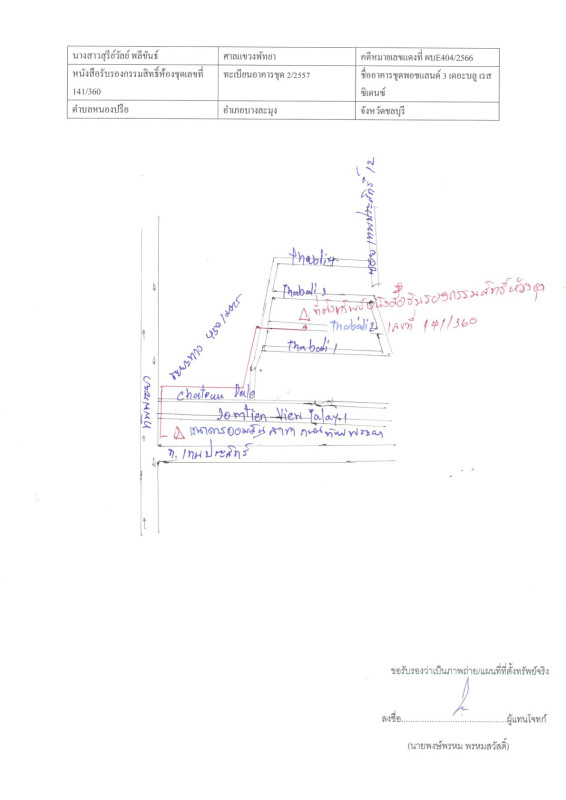 นางสาวสุรีย์วัลย์ พลีขันธ์ ศาลแขวงพัทยา คดีหมายเลขแดงที่ ผบE404/2566
หนังสือรับรองกรรมสิทธิ์ห้องชุดเลขที่ 141/360 ทะเบียนอาคารชุด 2/2557 ชื่ออาคารชุดพอชแลนด์ 3 เดอะบลู เรส ซิเดนซ์
ตำบลหนองปรือ อำเภอบางละมุง จังหวัดชลบุรี
ซอย เทพประสิทธิ์ 12
Thabali 4
Thabali 3
ที่ตั้งทรัพย์ หนังสือรับรองกรรมสิทธิ์ห้องชุด
Thabali 2 เลขที่ 141/360
Thabali 1
ระยะทาง 450 เมตร
ทัพพระยา
Chateau Dale
Jomtien View Talay 1
ธนาคารออมสิน สาขา ถนนทัพพระยา
ถ. เทพประสิทธิ์
ขอรับรองว่าเป็นภาพถ่าย/แผนที่ที่ตั้งทรัพย์จริง
ลงชื่อ..............................................ผู้แทนโจทก์
(นายพงษ์พรหม พรหมสวัสดิ์)